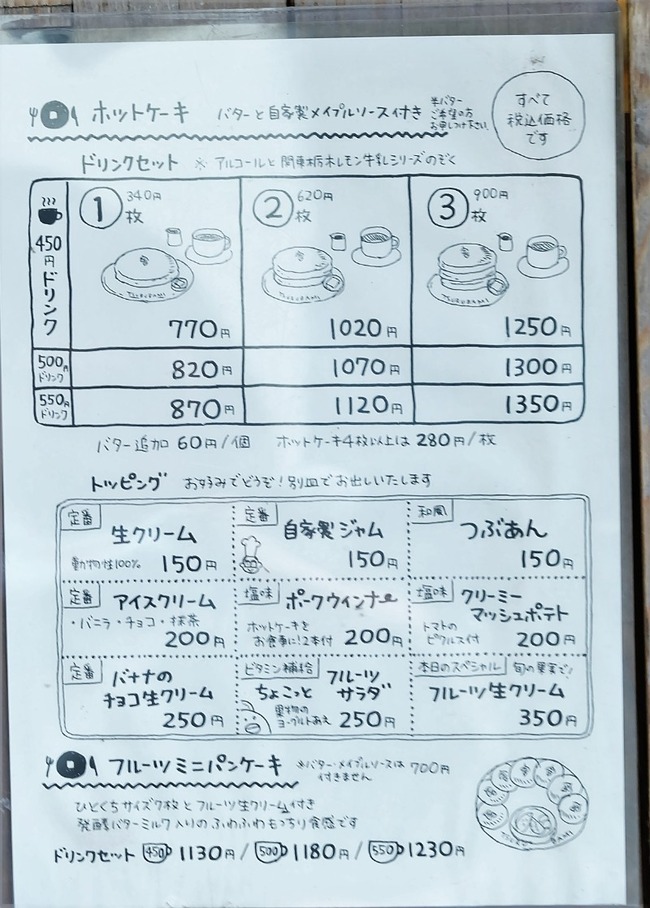 ホットケーキ バターと自家製メイプルソース付き
半バター
ご希望の方
お申しつけ下さい
すべて
税込価格
です
ドリンクセット ※アルコールと関東栃木レモン牛乳シリーズのぞく
450円ドリンク
1枚 340円
770円
2枚 620円
1020円
3枚 900円
1250円
500円ドリンク 820円 1070円 1300円
550円ドリンク 870円 1120円 1350円
バター追加 60円/個 ホットケーキ4枚以上は 280円/枚
トッピング お好みでどうぞ!別皿でお出しいたします
定番 生クリーム
動物性100% 150円
定番 自家製ジャム
150円
和風 つぶあん
150円
定番 アイスクリーム
・バニラ・チョコ・抹茶
200円
塩味 ポークウィンナー
ホットケーキを
お食事に!2本付 200円
塩味 クリーミー
マッシュポテト
トマトの
ピクルス付 200円
定番 バナナの
チョコ生クリーム
250円
ビタミン補給 フルーツ
ちょこっと サラダ
果物の
ヨーグルトあえ 250円
本日のスペシャル 旬の果実で!
フルーツ生クリーム
350円
フルーツミニパンケーキ ※バター・メイプルソースは
付きません 700円
ひとくちサイズ7枚とフルーツ生クリーム付き
発酵バターミルク入りのふわふわもっちり食感です
ドリンクセット 450 1130円/ 500 1180円/ 550 1230円